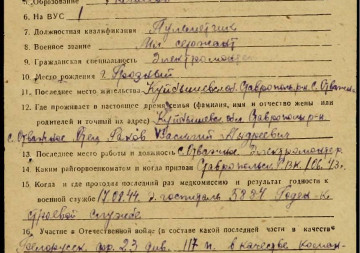 5. Образование
6. На ВУС 1
7. Должностная квалификация Пулеметчик
8. Военное звание Мл сержант
9. Гражданская специальность Электромонтер
10. Место рождения г. Грозный
11. Последнее место жительства Куйбышевск. обл. Ставропольск. р-н с.
12. Где проживает в настоящее время семья (фамилия, имя и отчество жены или
родителей и точный адрес) Куйбышевск обл. Ставрополь р-н
с. Отец Василий
13. Последнее место работы и должность Электромонтер
14. Каким райгорвоенкоматом и когда призван Ставропольск. РВК 1943 г.
15. Когда и где проходил последний раз медкомиссию и результат годности к
военной службе 17.08.44 г госпиталь Годен к
строевой службе
16. Участие в Отечественной войне (в составе какой последней части и в качестве
Белорусск. фр. 23 див. 117 п. в качестве